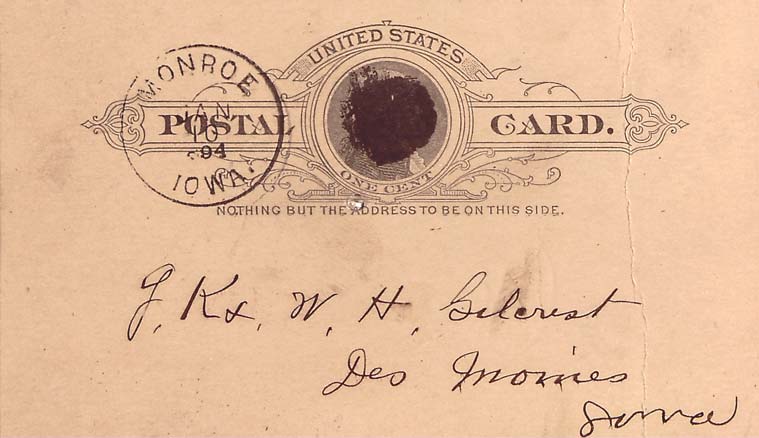 UNITED STATES
POSTAL CARD.
ONE CENT
NOTHING BUT THE ADDRESS TO BE ON THIS SIDE.
MONROE
JAN
10
94
IOWA.
J. K &, W. H. Gilcrest
Des Moines
Iowa